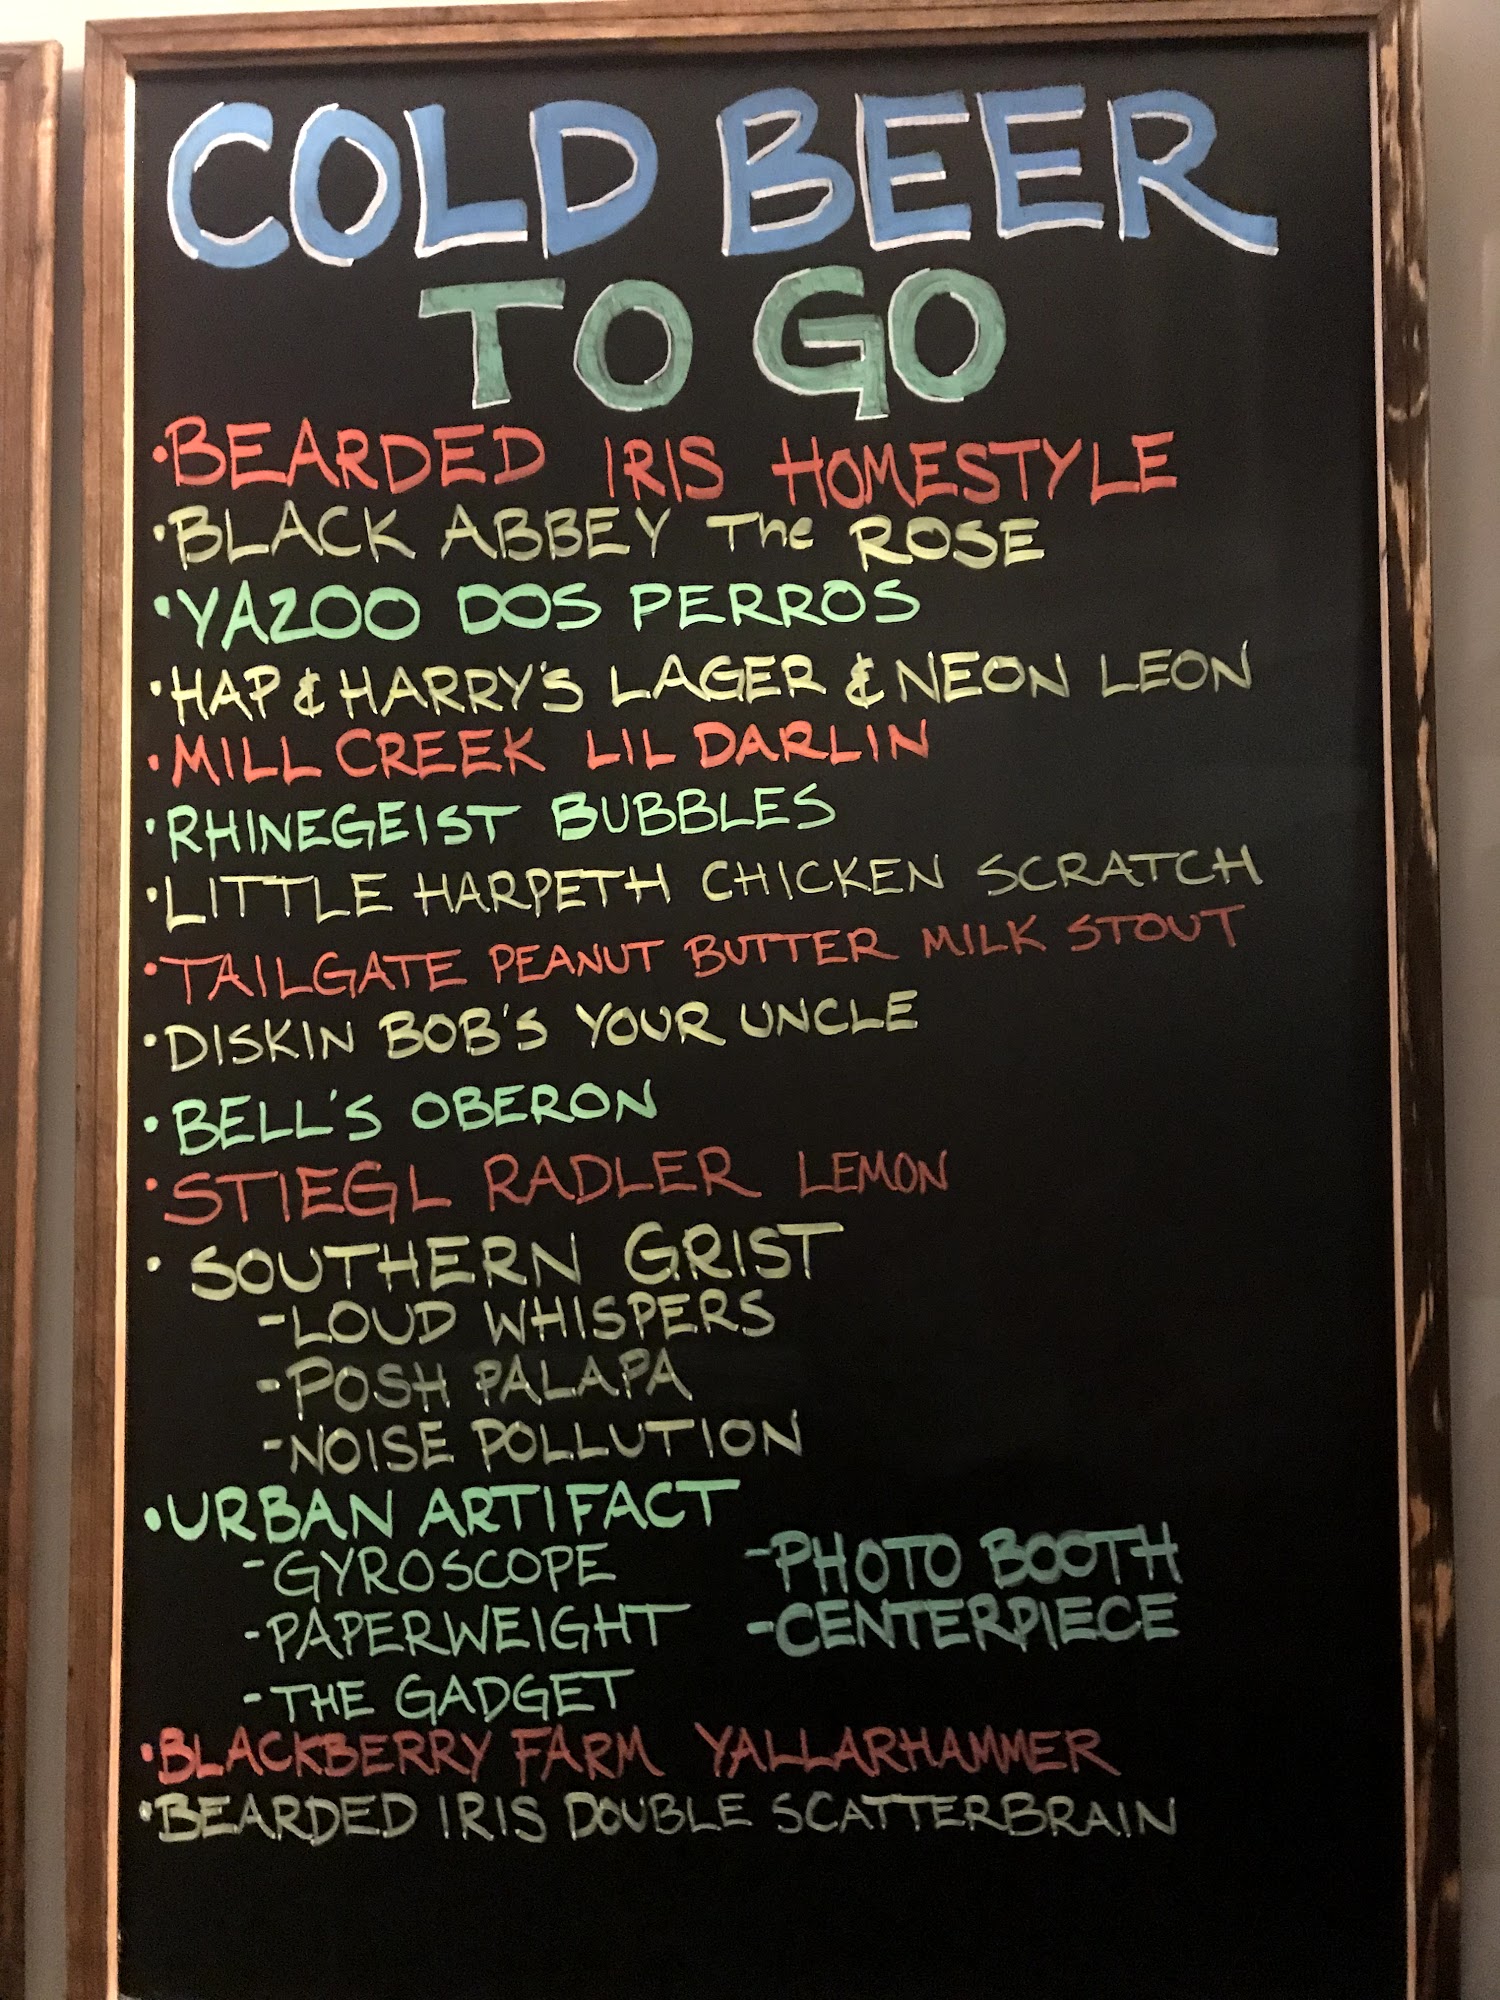 COLD BEER
TO GO
·BEARDED IRIS HOMESTYLE
·BLACK ABBEY The ROSE
·YAZOO DOS PERROS
·HAP & HARRY'S LAGER & NEON LEON
·MILL CREEK LIL DARLIN
·RHINEGEIST BUBBLES
·LITTLE HARPETH CHICKEN SCRATCH
·TAILGATE PEANUT BUTTER MILK STOUT
·DISKIN BOB'S YOUR UNCLE
·BELL'S OBERON
·STIEGL RADLER LEMON
·SOUTHERN GRIST
-LOUD WHISPERS
-POSH PALAPA
-NOISE POLLUTION
·URBAN ARTIFACT
-GYROSCOPE
-PAPERWEIGHT
-THE GADGET
-PHOTO BOOTH
-CENTERPIECE
·BLACKBERRY FARM YALLARHAMMER
·BEARDED IRIS DOUBLE SCATTERBRAIN